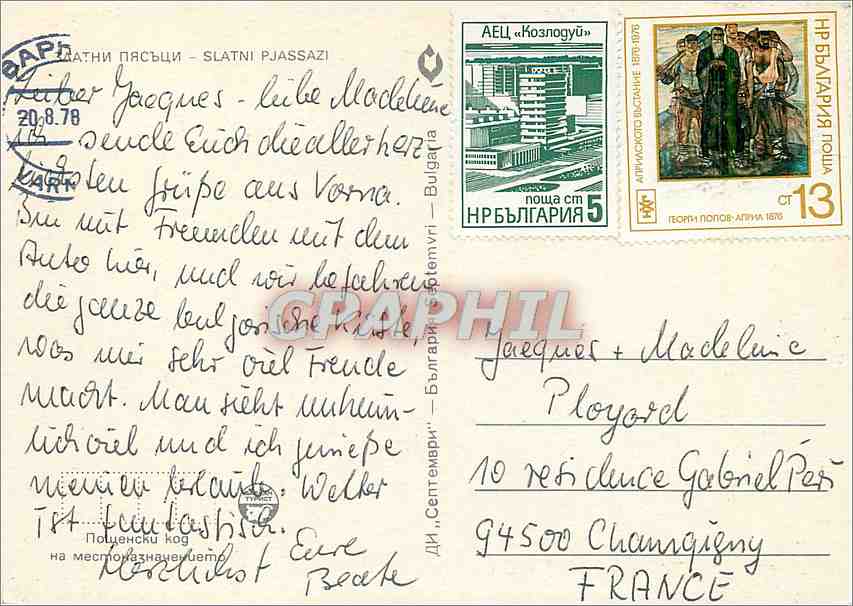 ЗЛАТНИ ПЯСЪЦИ – SLATNI PJASSAZI
ВАРНА
20.8.78
VARNA
Lieber Jacques - liebe Madeleine
Ich sende Euch die allerherz-
lichsten Grüße aus Varna.
Bin mit Freunden mit dem
Auto hier, und wir befahren
die ganze bulgarische Küste,
was mir sehr viel Freude
macht. Man sieht unheim-
lich viel und ich genieße
meinen Urlaub. Wetter
ist fantastisch.
Herzlichst Eure
Beate
Пощенски код
на местоназначението
ТУРИСТ
ДИ „Септември" — България — Septemvri — Bulgaria
АЕЦ „Козлодуй"
поща ст
НРБЪЛГАРИЯ 5
АПРИЛСКОТО ВЪСТАНИЕ 1876-1976
НРБЪЛГАРИЯ ПОЩА
СТ 13
ГЕОРГИ ПОПОВ-АПРИЛ 1876
CPAPHIL
Jacques + Madeleine
Ployard
10 residence Gabriel Péri
94500 Champigny
FRANCE